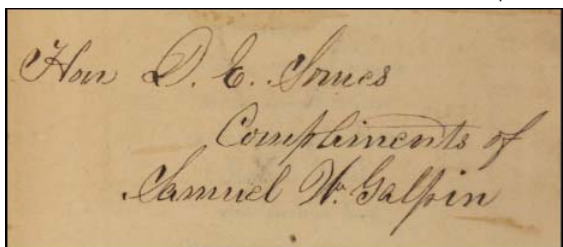 Hon D. E. Somes
Compliments of
Samuel W. Galpin